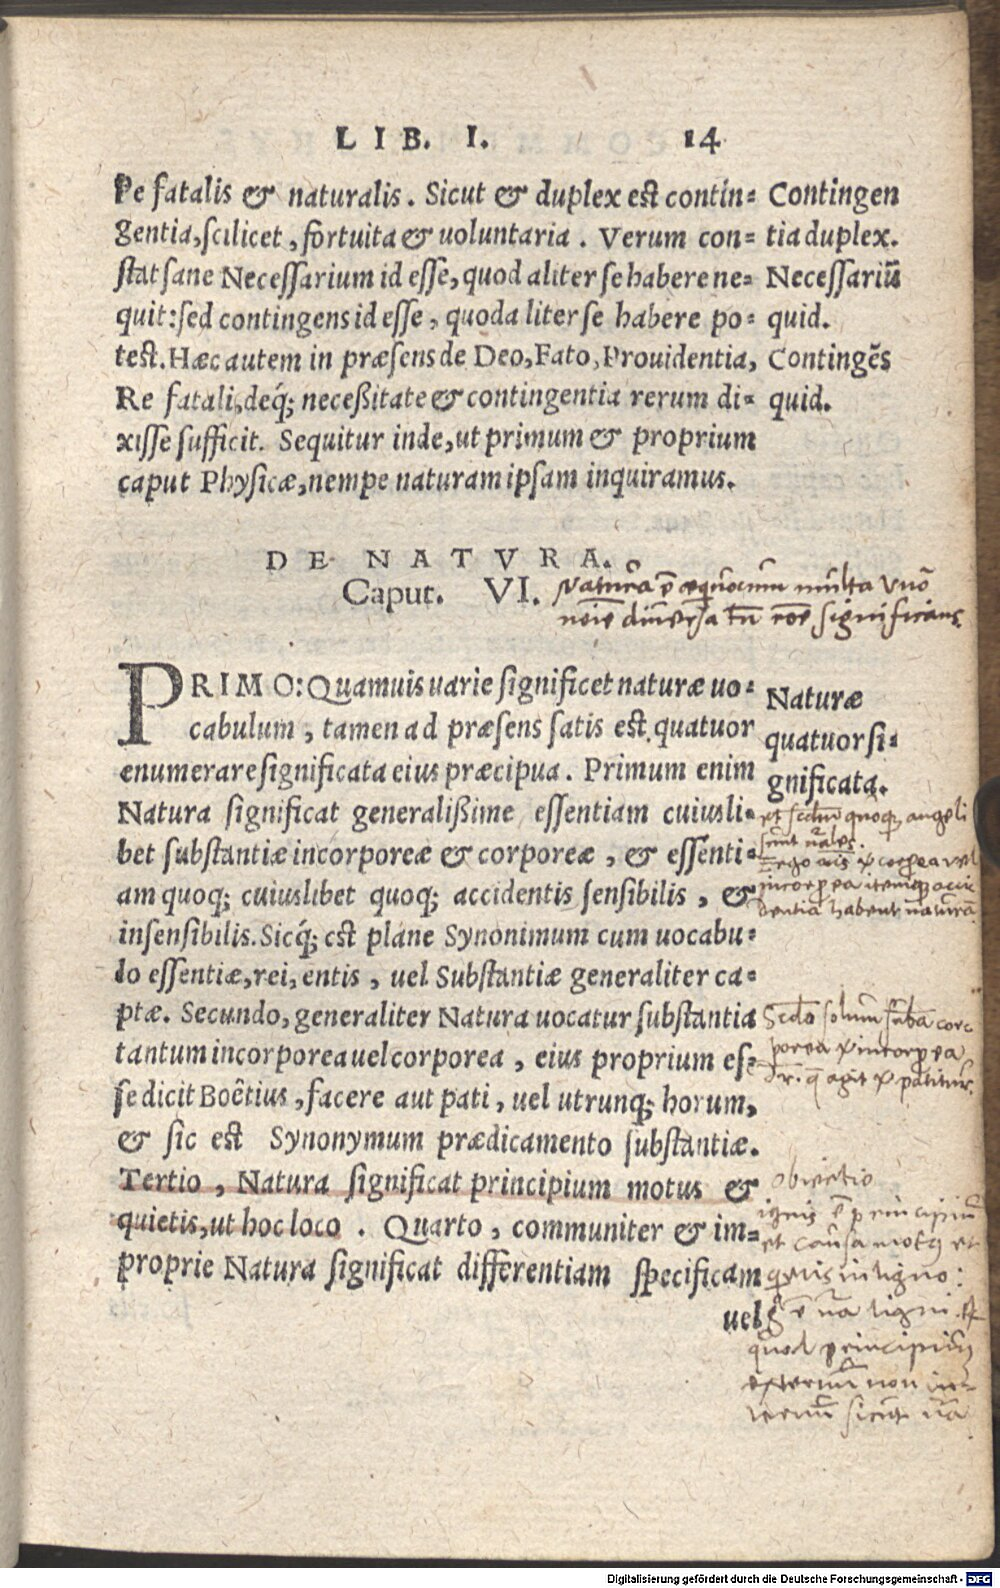 LIB. I. 14
Pe fatalis & naturalis. Sicut & duplex est contin=
gentia, scilicet, fortuita & uoluntaria. Verum con=
stat sane Necessarium id esse, quod aliter se habere ne=
quit: sed contingens id esse, quod aliter se habere po=
test. Hæc autem in præsens de Deo, Fato, Prouidentia,
Re fatali, deq́; neceßitate & contingentia rerum di=
xisse sufficit. Sequitur inde, ut primum & proprium
caput Physicæ, nempe naturam ipsam inquiramus.
Contingen
tia duplex.
Necessariũ
quid.
Contingẽs
quid.
DE NATVRA.
Caput. VI.
Natura ẽ æquiuocum multa vno
noie diuersa tñ roẽ significans.
PRIMO: Quamuis uarie significet naturæ uo=
cabulum, tamen ad præsens satis est quatuor
enumerare significata eius præcipua. Primum enim
Natura significat generalißime essentiam cuiusli=
bet substantiæ incorporeæ & corporeæ, & essenti=
am quoq; cuiuslibet quoq; accidentis sensibilis, &
insensibilis. Sicq́; est plane Synonimum cum uocabu=
lo essentiæ, rei, entis, uel Substantiæ generaliter ca=
ptæ. Secundo, generaliter Natura uocatur substantia
tantum incorporea uel corporea, eius proprium es=
se dicit Boêtius, facere aut pati, uel utrunq; horum,
& sic est Synonymum prædicamento substantiæ.
Tertio, Natura significat principium motus &
quietis, ut hoc loco. Quarto, communiter & im=
proprie Natura significat differentiam specificam
uel
Naturæ
quatuor si=
gnificata.
et quoq; angeli
sunt
ergo corporea vel
incorporea itemq; acci
dentia habent naturã
solum cor
porea incorporea
q̃ agit patitur.
Obiectio
ignis ẽ principiũ
et causa motq et
quietis in ligno:
ẽ ligni.
quod principium
externũ non in=
ternũ sicut